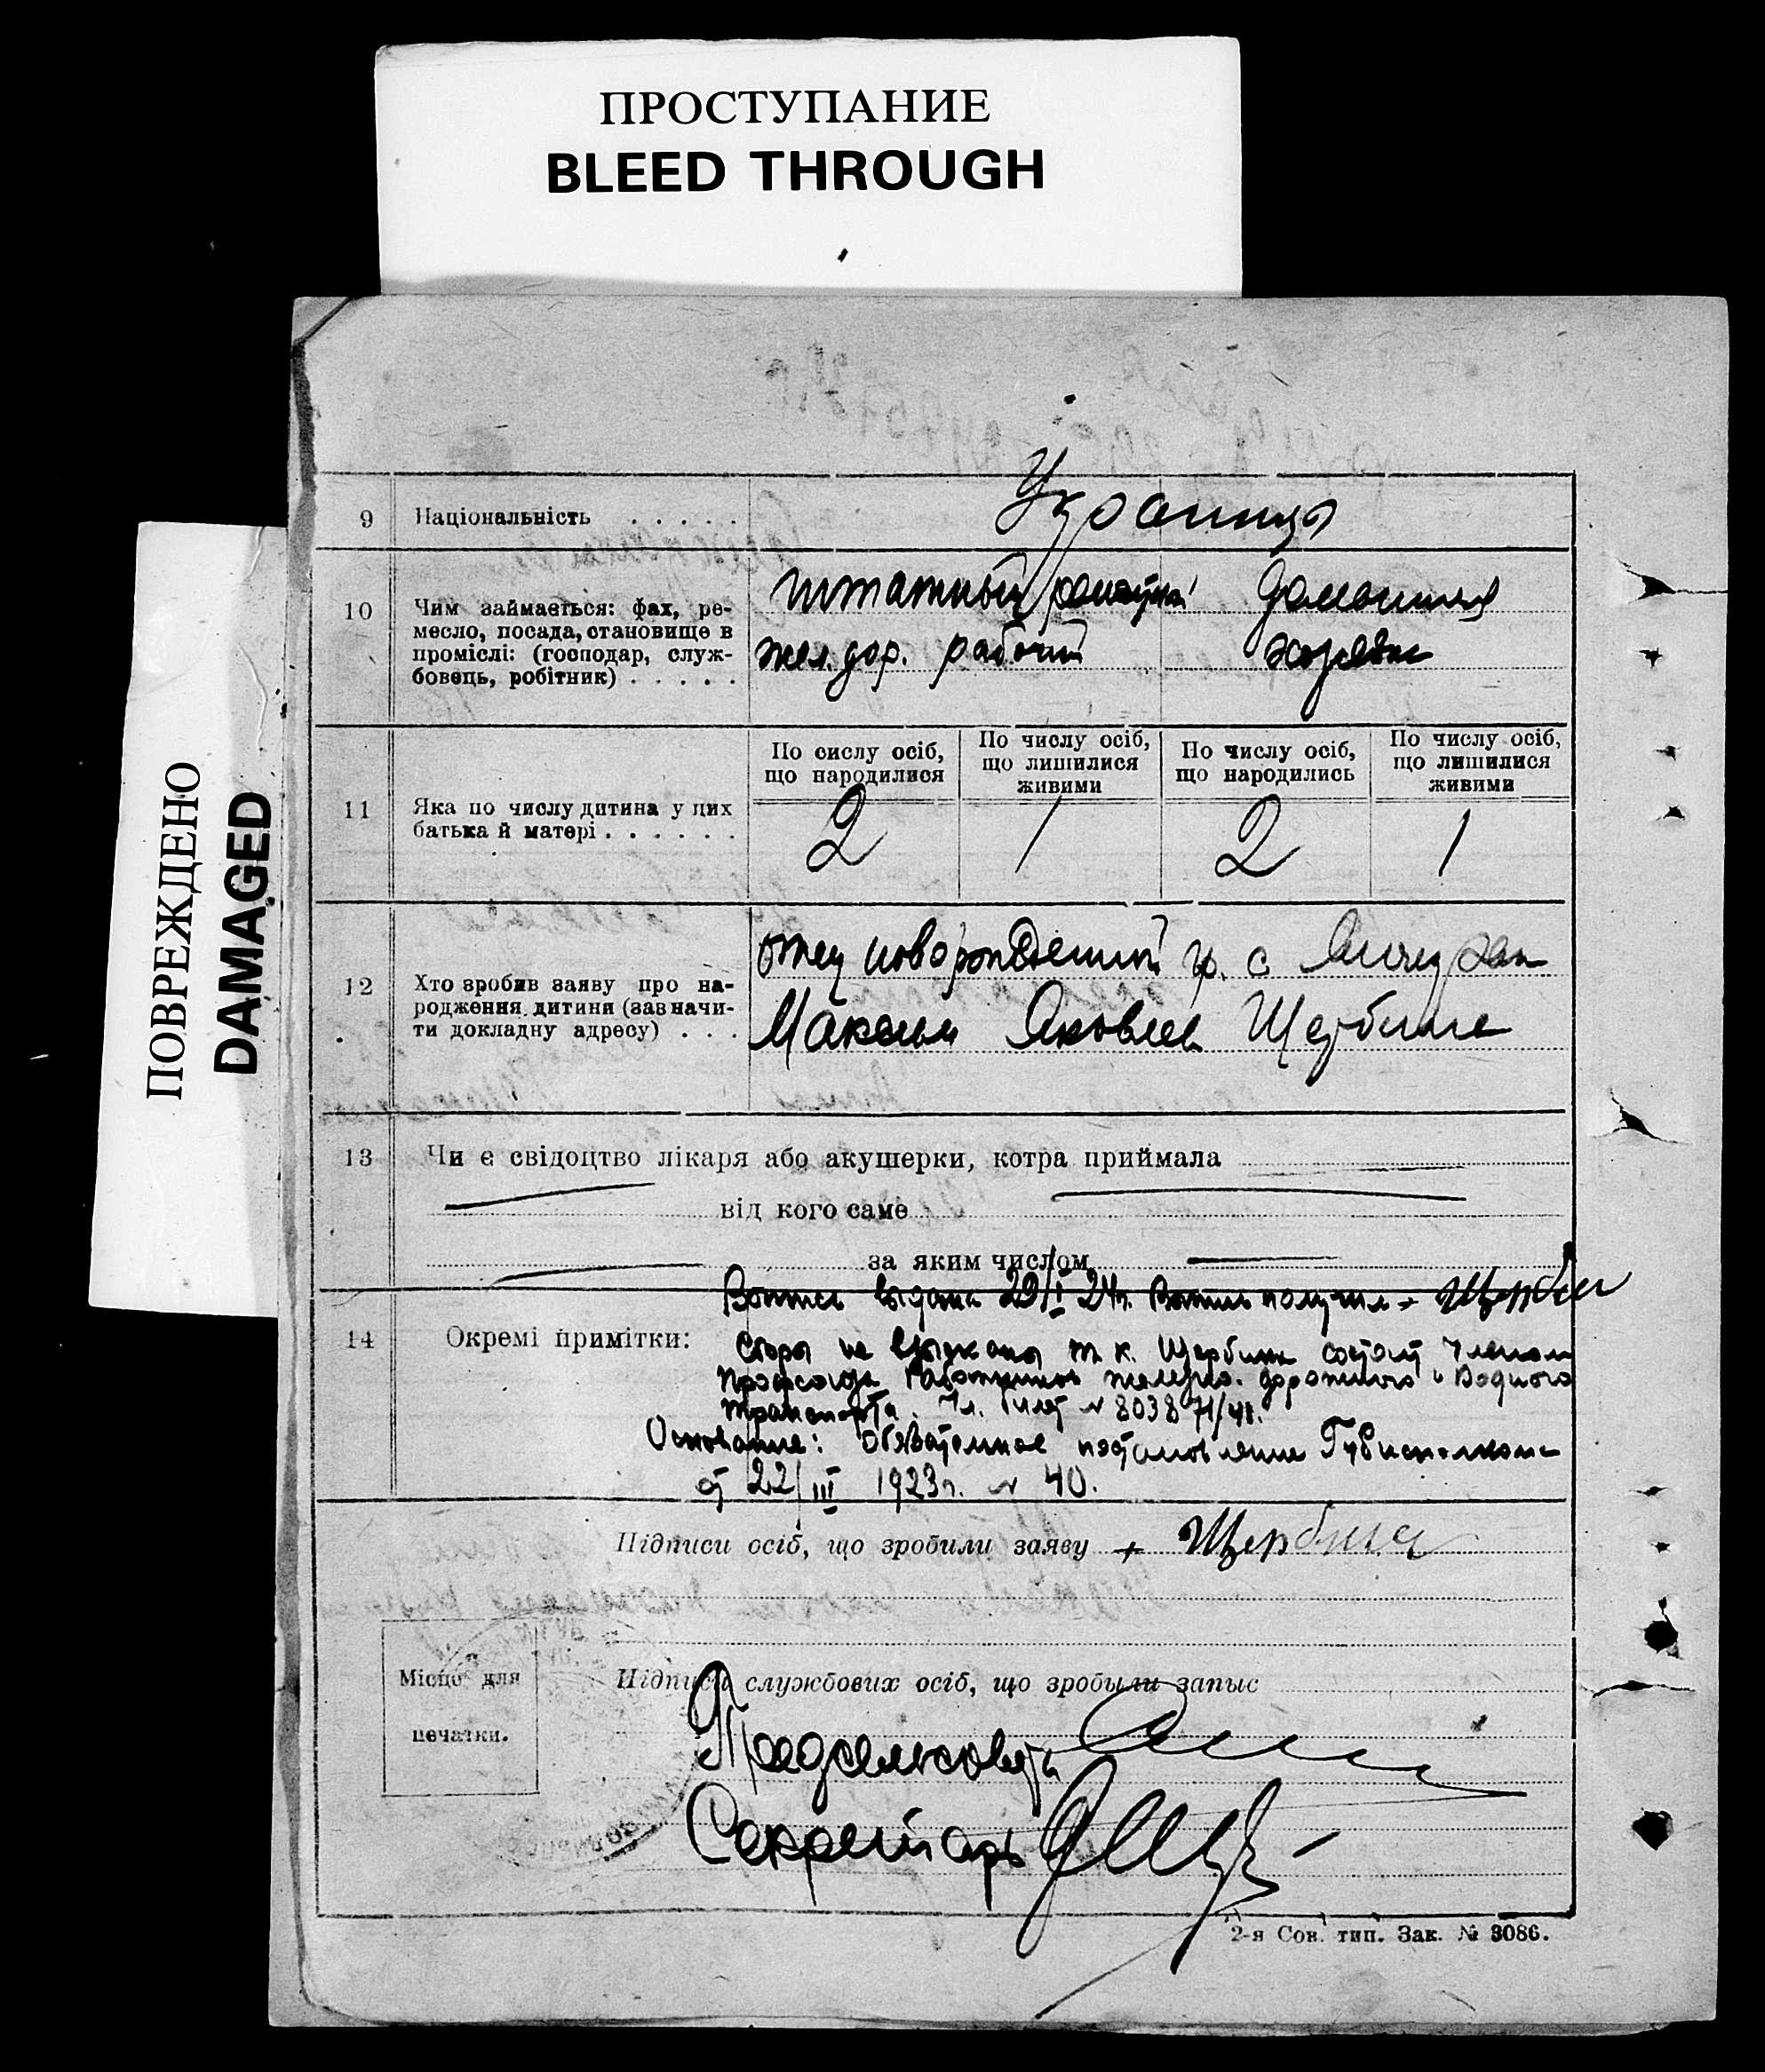 ПРОСТУПАНИЕ
BLEED THROUGH
ПОВРЕЖДЕНО
DAMAGED
9 Національність . . . . .
Украинцы
10 Чим займається: фах, ре-
месло, посада, становище в
проміслі: (господар, служ-
бовець, робітник) . . . . .
штатный Домашняя
жел. дор. рабочий хозяйка
11 Яка по числу дитина у цих
батька й матері . . . . . .
По сислу осіб,
що народилися
По числу осіб,
що лишилися
живими
По числу осіб,
що народились
По числу осіб,
що лишилися
живими
2 1 2 1
12 Хто зробив заяву про на-
родження дитиня (зазначи-
ти докладну адресу) . . .
отец новорожденной гр. с
Максим Яковлев Щербина
13 Чи є свідоцтво лікаря або акушерки, котра приймала
від кого саме
за яким числом
14 Окремі примітки:
Выпись выдана 29/I 24г. Выпись получил + Щербина
Сборы не взысканы т. к. Щербина состоит Членом
Профсоюза Работников железно-дорожного и Водного
транспорта. Чл. билет № 803871/41.
Основание: Обязательное постановление Губисполкома
от 22/III 1923г. № 40.
Підписи осіб, що зробили заяву + Щербина
Місце для
печатки.
Підписи службових осіб, що зробыли запыс
Предсельсовета
Секретарь
2-я Сов. тип. Зак. № 3086.